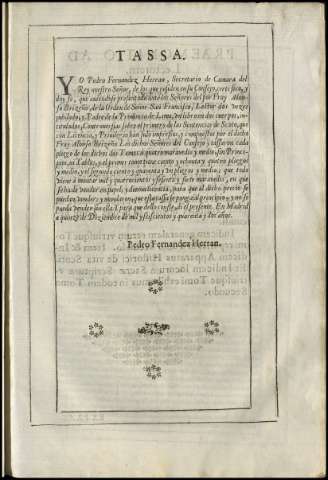 TASSA.
YO Pedro Fernandez Herran, Secretario de Camara del
Rey nuestro Señor, de los que residen en su Consejo, certifico, y
doy fe, que auiendose presentado ante los Señores del por Fray Alon-
so Brizeño, de la Orden de Señor San Francisco, Lector dos vezes
jubilado, y Padre de la Prouincia de Lima, vn libro en dos cuerpos, in-
titulados, Controuersias sobre el primero de las Sentencias de Scoto, que
con Licencia, y Priuilegio han sido impressos, y compuestos por el dicho
Fray Alonso Brizeño. Los dichos Señores del Consejo tassaron cada
pliego de los dichos dos Tomos à quatro marauedis y medio, sin Princi-
pios, ni Tablas, y el primero tiene ciento y nouenta y quatro pliegos
y medio, y el segundo ciento y pliegos y medio; que todo
viene à montar mil y quatrocientos y sesenta y siete marauedis, en que
se ha de vender en papel, y dieron licencia, para que al dicho precio se
puedan vender; y mandaron, que esta tassa se ponga al principio, y no se
pueda vender sin ella. Y para que dello conste, di el presente. En Madrid
à quinze de Diziembre de mil y seiscientos y quarenta y dos años.
Pedro Fernandez Herran.